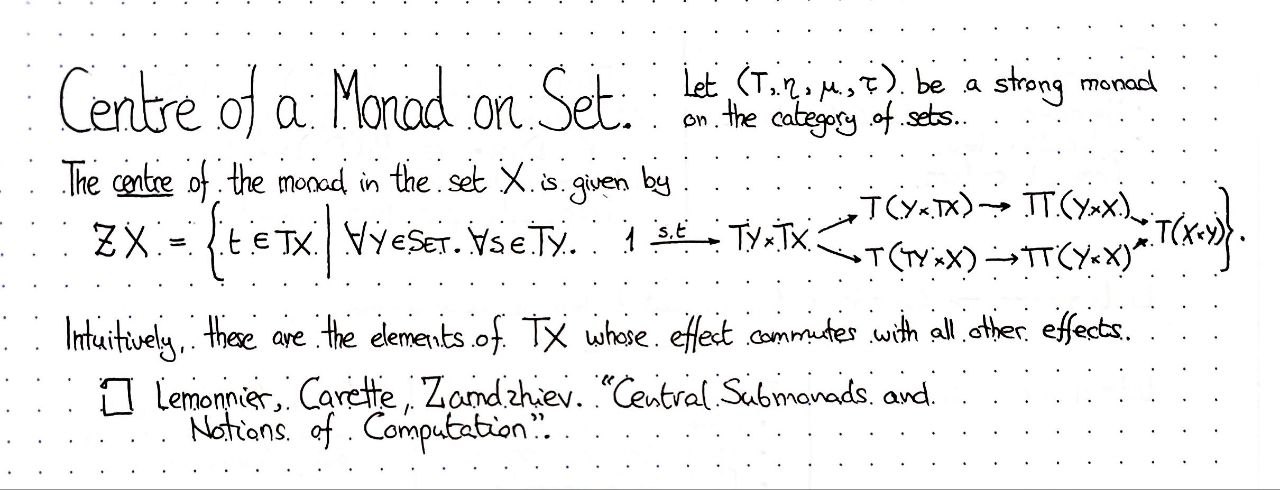 Centre of a Monad on Set.
Let (T, η, μ, τ) be a strong monad
on the category of sets.
The centre of the monad in the set X is given by
ZX = { t ∈ TX | ∀Y∈SET. ∀s∈TY. 1 —s,t→ TY×TX
T(Y×TX) → TT(Y×X)
T(TY×X) → TT(Y×X)
T(X×Y) }.
Intuitively, these are the elements of TX whose effect commutes with all other effects.
Lemonnier, Carette, Zamdzhiev. "Central Submonads and
Notions of Computation".